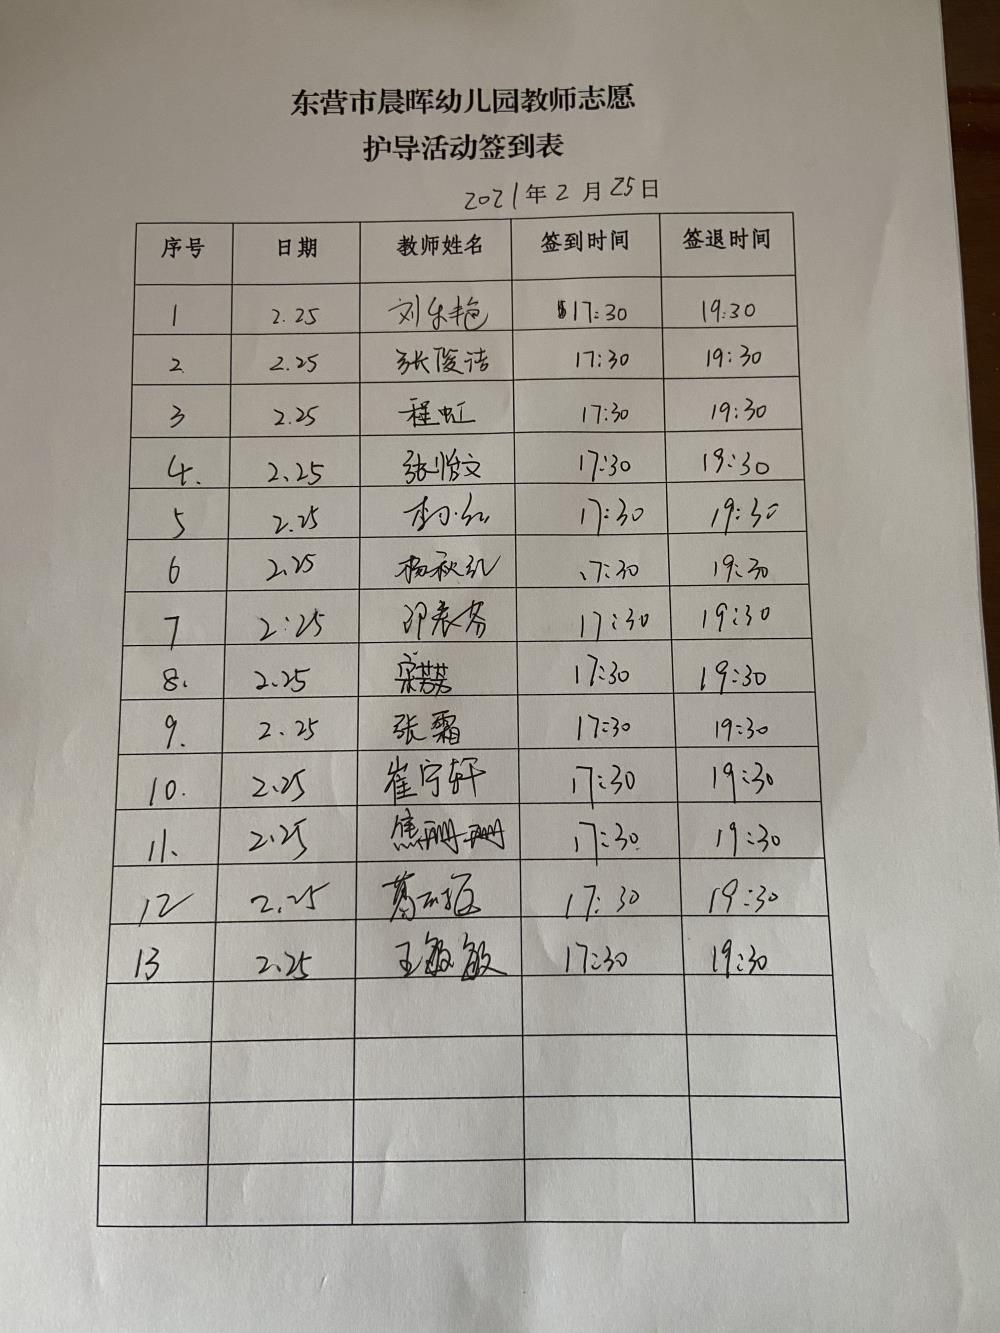 东营市晨晖幼儿园教师志愿
护导活动签到表
2021年2月25日
序号 日期 教师姓名 签到时间 签退时间
1 2.25 刘乐艳 17:30 19:30
2 2.25 张俊洁 17:30 19:30
3 2.25 程虹 17:30 19:30
4. 2.25 张怡文 17:30 19:30
5 2.25 17:30 19:30
6 2.25 杨秋红 17:30 19:30
7 2:25 17:30 19:30
8. 2.25 宋芳芳 17:30 19:30
9. 2.25 张霜 17:30 19:30
10. 2.25 崔宁轩 17:30 19:30
11. 2.25 焦珊珊 17:30 19:30
12 2.25 17:30 19:30
13 2.25 王敏敏 17:30 19:30